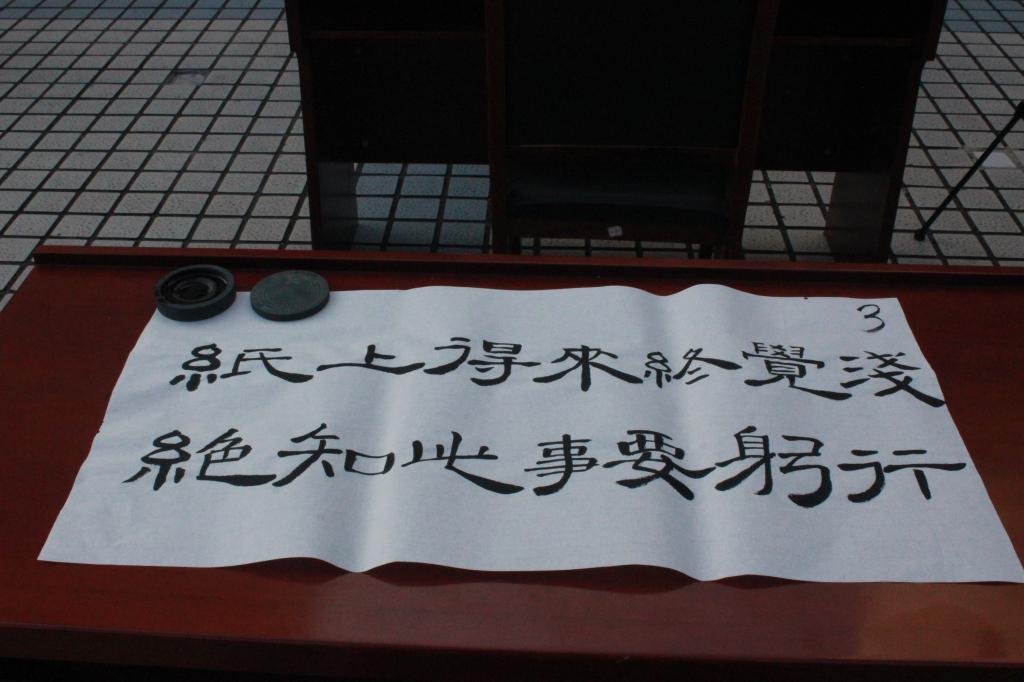 3
紙上得來終覺淺
絕知此事要躬行